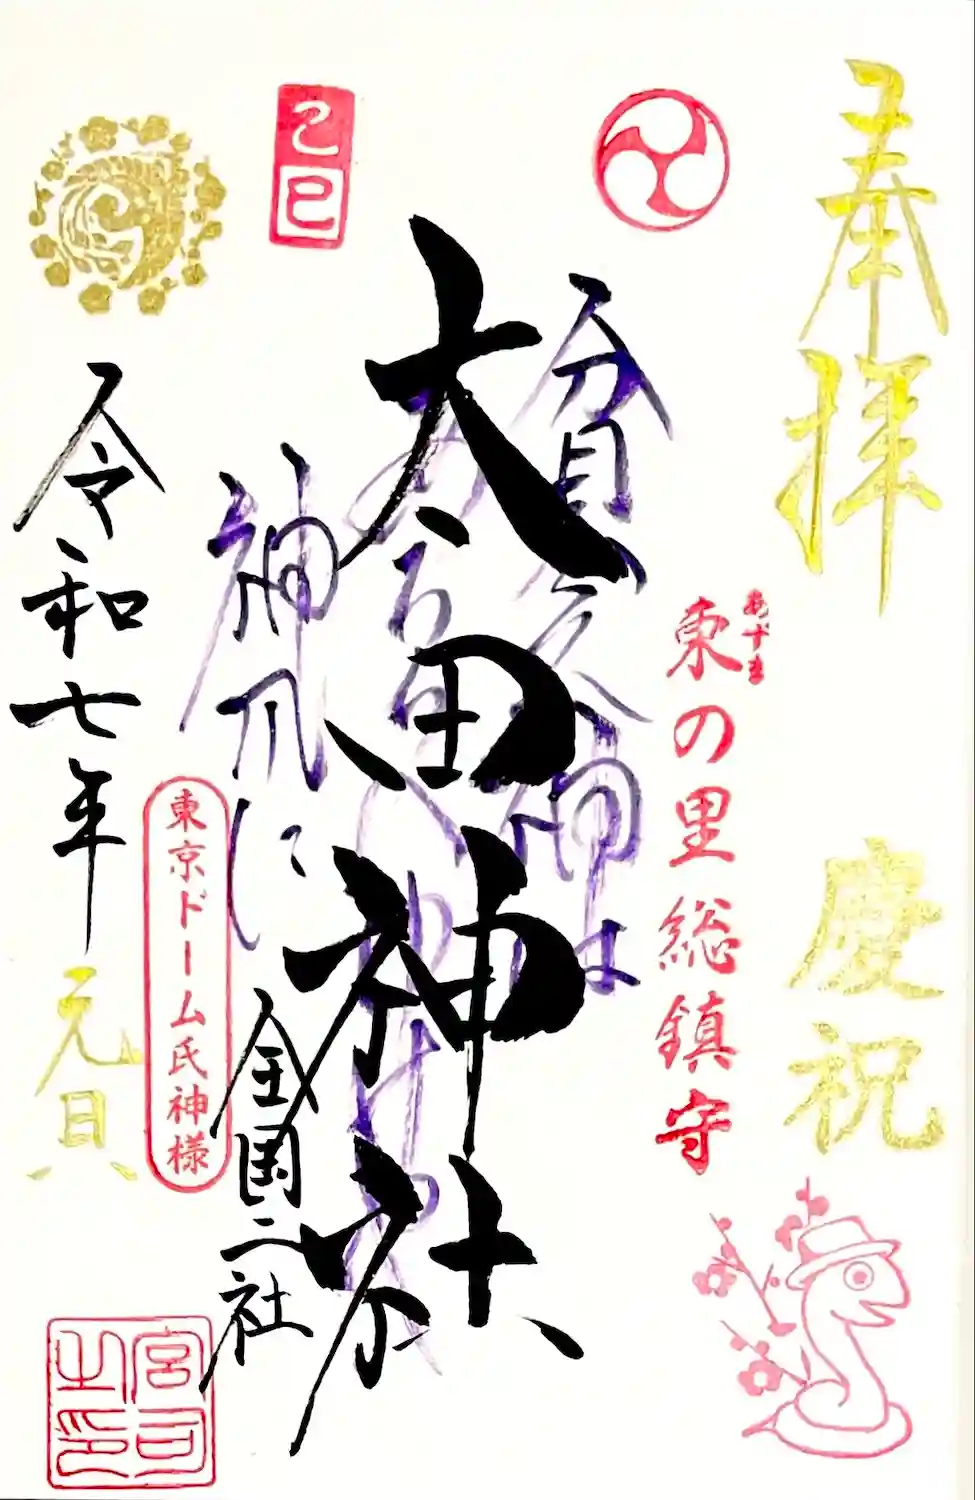 奉拝
慶祝
あずま
東の里総鎮守
貧乏神は
太田神社
乙巳
全国二社
東京ドーム氏神様
令和七年
元旦
宮司之印